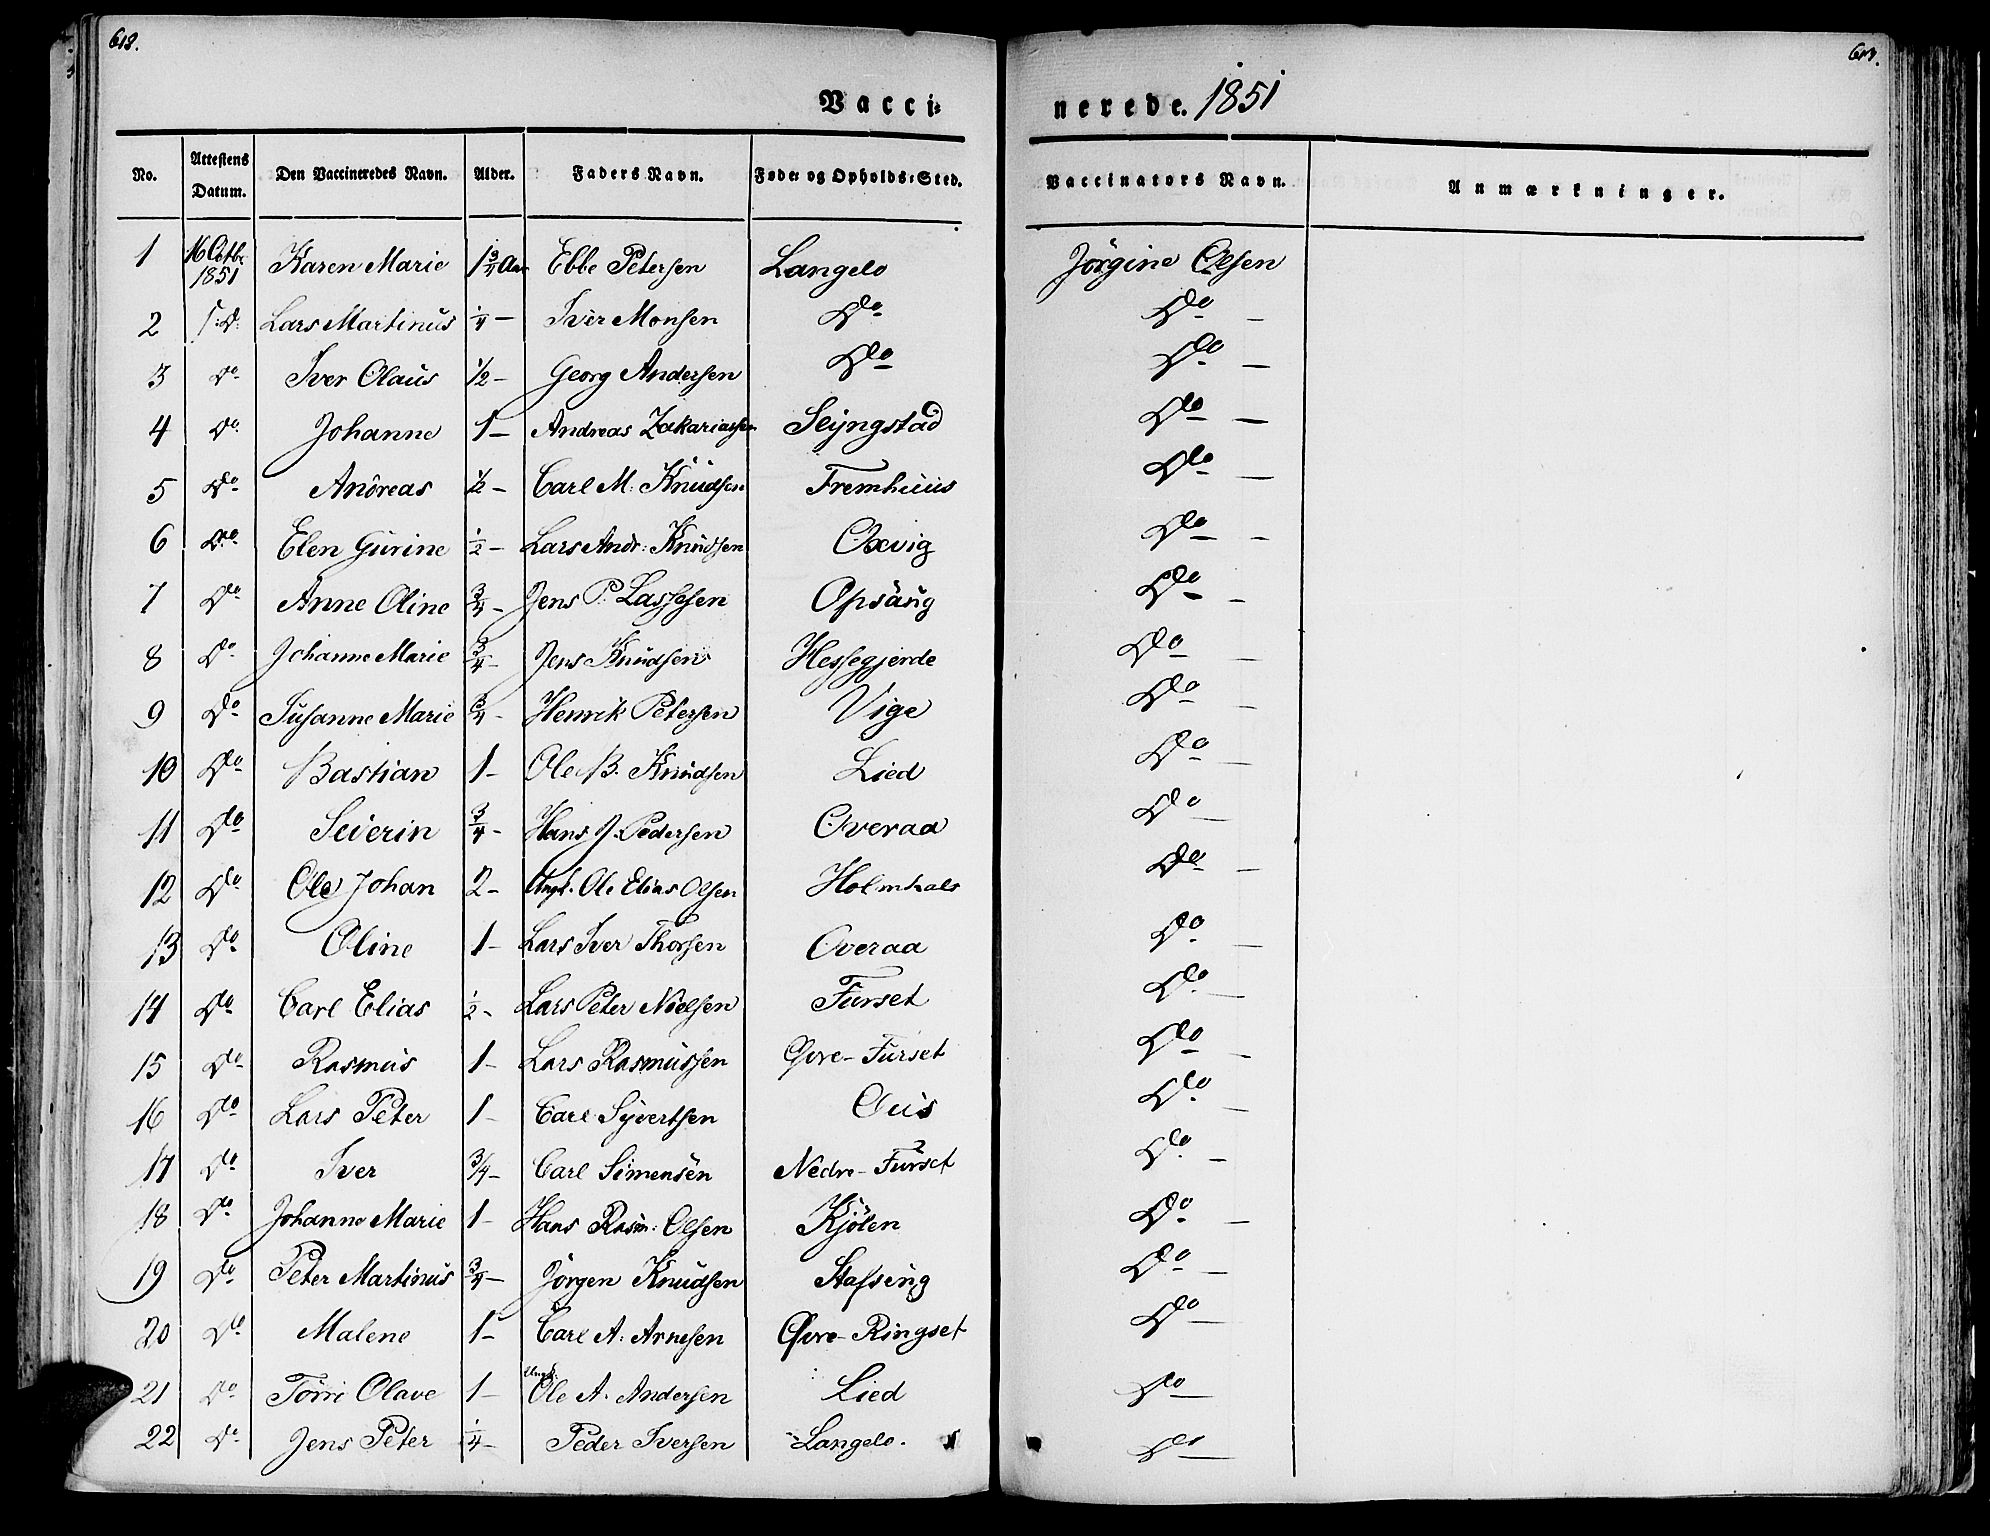 612.
613.
Vacci-
nerede. 1851
No. Attestens Datum. Den Vaccineredes Navn. Alder. Faders Navn. Føde- og Opholds-Sted. Vaccinators Navn. Anmærkninger.
1 16 Octbr 1851 Karen Marie 1 3/4 Aar Ebbe Petersen Langelo Jörgine Olsen
2 Do Lars Martinus 1/4 — Iver Monsen Do Do —
3 Do Iver Olaus 1/2 — Georg Andersen Do Do —
4 Do Johanne 1 — Andreas Zakariassen Slyngstad Do —
5 Do Andreas 1/2 — Carl M: Knudsen Fremhuus Do —
6 Do Elen Gurine 1/2 — Lars Andr: Knudsen Oxvig Do —
7 Do Anne Oline 3/4 — Jens P. Lassesen Opsaug Do —
8 Do Johanne Marie 3/4 — Jens Knudsen Hessegjerde Do —
9 Do Susanne Marie 3/4 — Henrik Petersen Vige Do —
10 Do Bastian 1 — Ole B. Knudsen Lied Do —
11 Do Severin 3/4 — Hans J. Pedersen Overaa Do —
12 Do Ole Johan 2 — Ungk. Ole Elias Olsen Holmhals Do —
13 Do Oline 1 — Lars Iver Thorsen Overaa Do —
14 Do Carl Elias 1/2 — Lars Peter Nielsen Furset Do —
15 Do Rasmus 1 — Lars Rasmussen Øvre-Furset Do —
16 Do Lars Peter 1 — Carl Syvertsen Ous Do —
17 Do Iver 3/4 — Carl Simensen Nedre-Furset Do —
18 Do Johanne Marie 1 — Hans Rasm: Olsen Kjölen Do —
19 Do Peter Martinus 3/4 — Jörgen Knudsen Stafseng Do —
20 Do Malene 1 — Carl A: Arnesen Øvre-Ringset Do —
21 Do Torri Olave 1 — Ungk: Ole A. Andersen Lied Do —
22 Do Jens Peter 1/4 — Peder Iversen Langelo. Do —